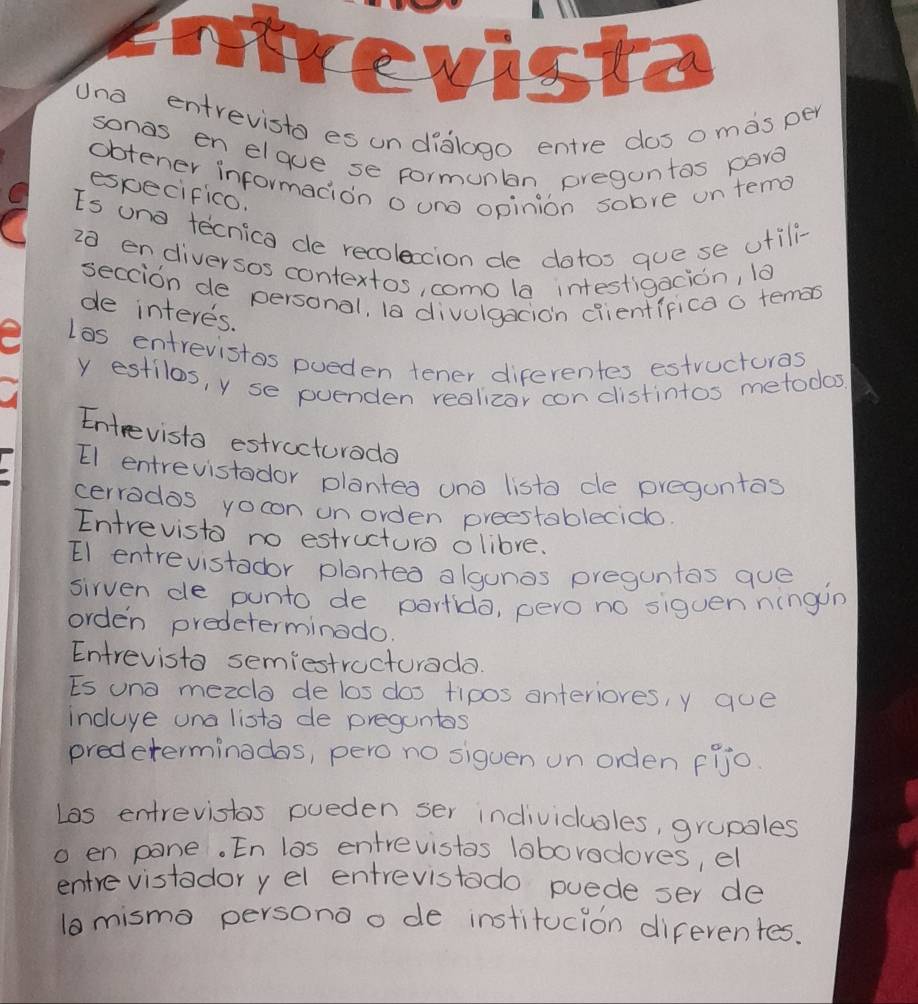 Entrevista
Una entrevista es un diálogo entre dos o más per
sonas en el que se formunlan preguntas para
obtener información o una opinión sobre un tema
especifico.
Es una técnica de recoleccion de datos que se utili-
za en diversos contextos, como la intestigación, la
sección de personal, la divulgación científica o temas
de interés.
las entrevistas pueden tener diferentes estructuras
y estilos, y se puenden realizar con distintos metodos.
Entrevista estructurada
El entrevistador plantea una lista de preguntas
cerradas yocon un orden preestablecido.
Entrevista no estructura o libre.
El entrevistador plantea algunas preguntas que
sirven de punto de partida, pero no siguen ningún
orden predeterminado.
Entrevista semiestructurada.
Es una mezcla de los dos tipos anteriores, y que
incluye una lista de preguntas
predeterminadas, pero no siguen un orden fijo.
Las entrevistas pueden ser individuales, grupales
o en pane. En las entrevistas laboradores, el
entrevistador y el entrevistado puede ser de
la misma persona o de institución diferentes.